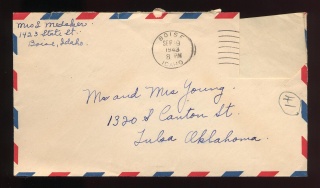 Mrs I McCasker.
1423 State St.
Boise, Idaho.
BOISE
1943
8 PM
IDAHO
Mr and Mrs Young.
1320 S Canton St
Tulsa Oklahoma.